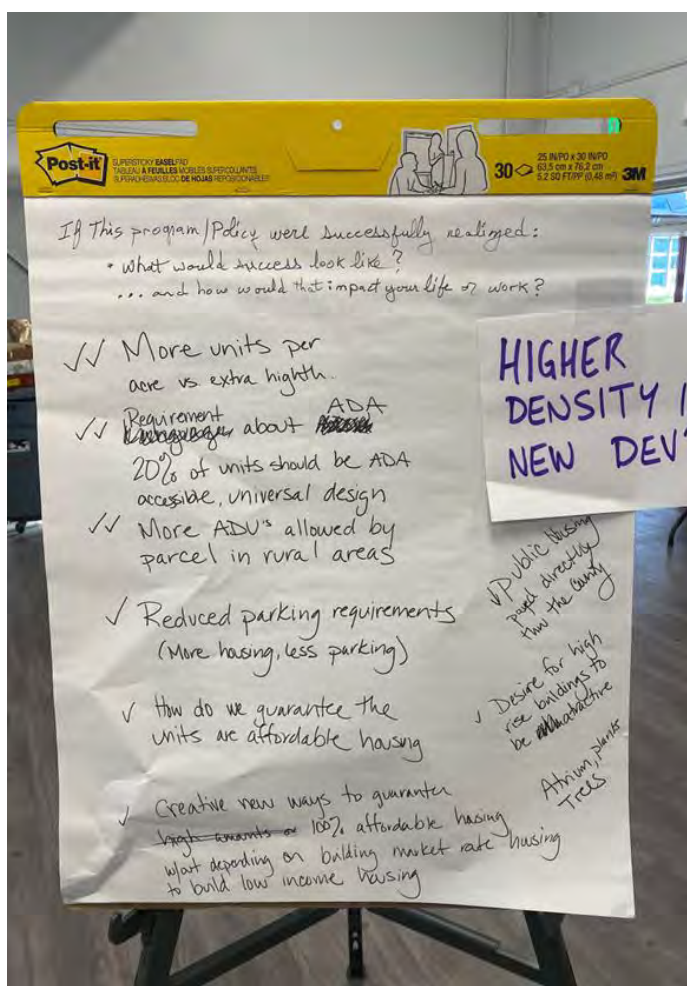 Post-it
SUPERSTICKY EASEL PAD
TABLEAU À FEUILLES MOBILES SUPERCOLLANTES
SUPERADHESIVAS BLOC DE HOJAS REPOSICIONABLES
30
25 IN/PO x 30 IN/PO
63,5 cm x 76,2 cm
5.2 SQ FT/PP² (0,48 m²)
3M
If This program/Policy were successfully realized:
• What would success look like?
... and how would that impact your life or work?
✓✓ More units per
acre vs. extra highth.
✓✓ Requirement about ADA
20% of units should be ADA
accessible, universal design
✓✓ More ADU's allowed by
parcel in rural areas
✓ Reduced parking requirements
(More housing, less parking)
✓ How do we guarantee the
units are affordable housing
✓ Creative new ways to guarantee
high amounts or 100% affordable housing
w/out depending on building market rate housing
to build low income housing
HIGHER
DENSITY
NEW DEV
✓ Public housing
payed directly
thru the County
✓ Desire for high
rise buildings to
be attractive
Atrium, plants
Trees